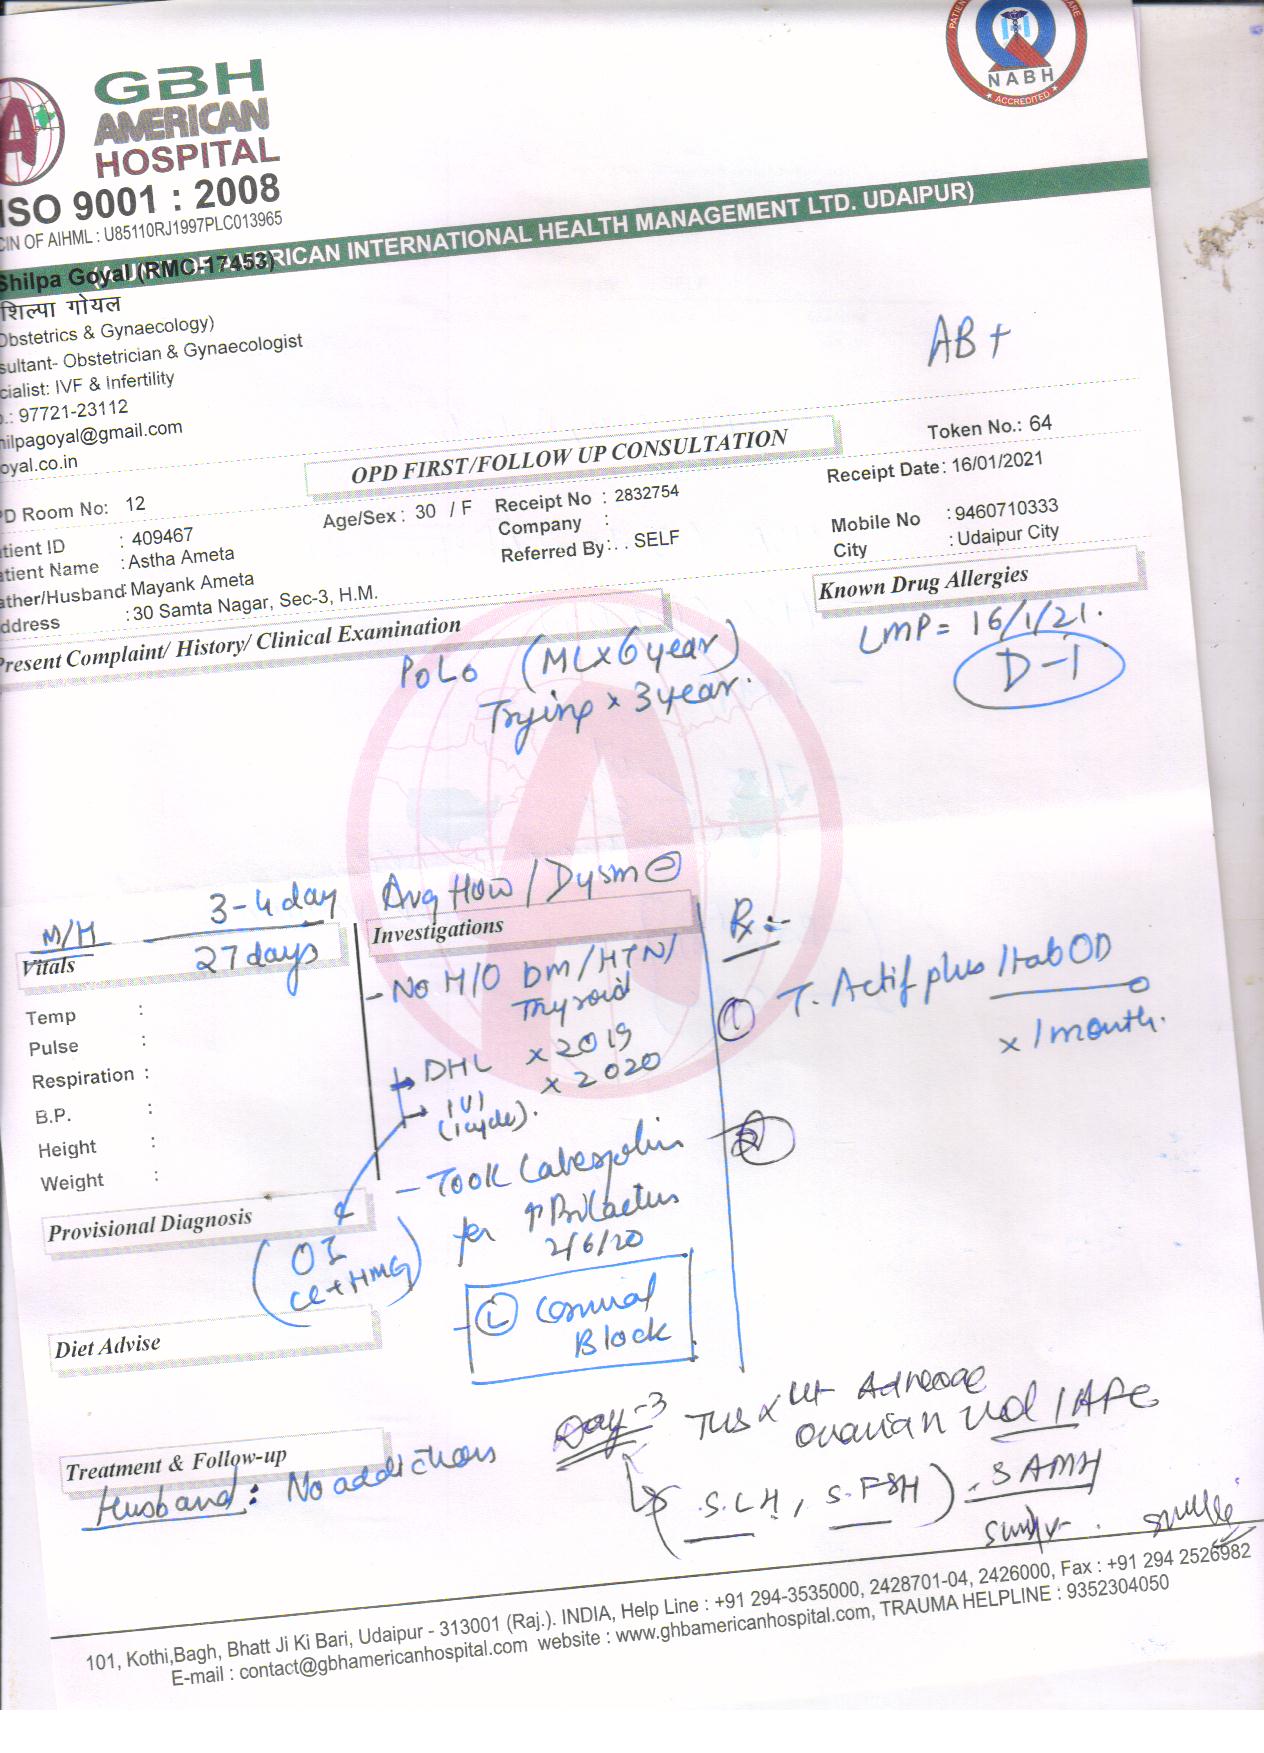 GBH
AMERICAN
HOSPITAL
ISO 9001 : 2008
CIN OF AIHML : U85110RJ1997PLC013965
NABH
ACCREDITED
AMERICAN INTERNATIONAL HEALTH MANAGEMENT LTD. UDAIPUR)
Shilpa Goyal (RMC-17453)
शिल्पा गोयल
Obstetrics & Gynaecology)
sultant- Obstetrician & Gynaecologist
cialist: IVF & Infertility
o.: 97721-23112
hilpagoyal@gmail.com
oyal.co.in
AB+
OPD FIRST/FOLLOW UP CONSULTATION
Token No.: 64
D Room No: 12
Age/Sex : 30 / F
Receipt No : 2832754
Receipt Date: 16/01/2021
tient ID : 409467
Company :
Mobile No : 9460710333
atient Name : Astha Ameta
Referred By: . . SELF
City : Udaipur City
ather/Husband: Mayank Ameta
ddress : 30 Samta Nagar, Sec-3, H.M.
Known Drug Allergies
Present Complaint/ History/ Clinical Examination
LMP = 16/1/21.
D-1
P0L0 (ML x 6 year)
Trying x 3 year.
M/H 3-4 day Avg flow / Dysm ⊖
27 days
Vitals
Temp :
Pulse :
Respiration :
B.P. :
Height :
Weight :
Investigations
- No H/O DM/HTN/
Thyroid
→ DHL x 2019
→ IUI x 2020
(1 cycle).
- Took
for ↑ Prolactin
2/6/20
(OI
CC + HMG)
- Ⓛ Cornual
Block
Rx :-
① T. Actif plus 1 tab OD
x 1 month.
②
Provisional Diagnosis
Diet Advise
Treatment & Follow-up
Husband : No addictions
Day-3 TVS x Ut
ovarian vol / AFC
(S.LH, S.FSH). S AMH
101, Kothi,Bagh, Bhatt Ji Ki Bari, Udaipur - 313001 (Raj.). INDIA, Help Line : +91 294-3535000, 2428701-04, 2426000, Fax : +91 294 2526982
E-mail : contact@gbhamericanhospital.com website : www.ghbamericanhospital.com, TRAUMA HELPLINE : 9352304050